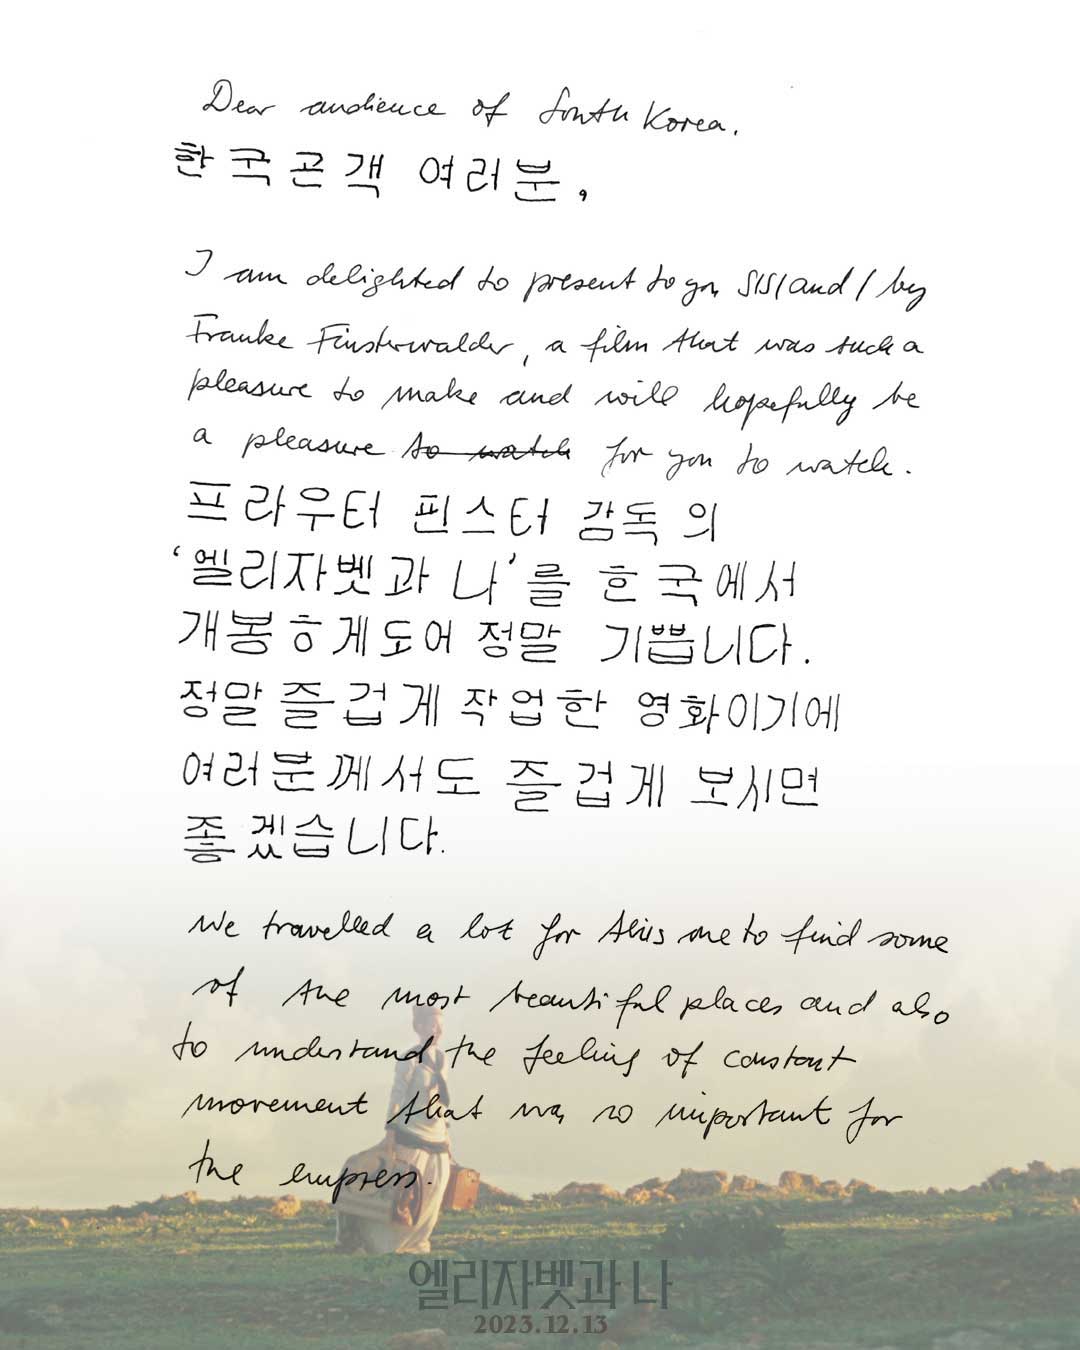 Dear audience of South Korea.
한국곤객 여러분,
I am delighted to present to you SISI and I by
Frauke Finsterwalder, a film that was such a
pleasure to make and will hopefully be
a pleasure to watch for you to watch.
프라우터 핀스터 감독의
‘엘리자벳과 나’를 한국에서
개봉하게도어 정말 기쁩니다.
정말 즐겁게 작업한 영화이기에
여러분께서도 즐겁게 보시면
좋겠습니다.
We travelled a lot for this one to find some
of the most beautiful places and also
to understand the feeling of constant
movement that was so important for
the empress.
엘리자벳과 나
2023.12.13